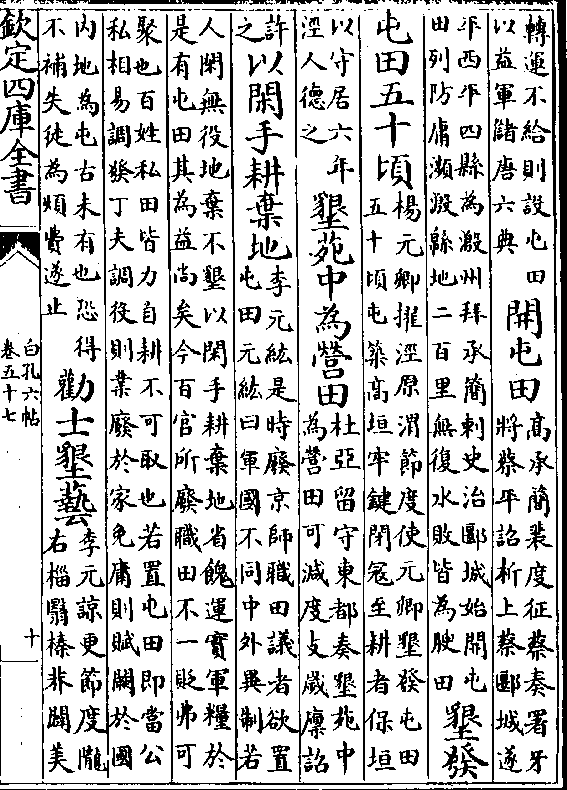 轉運不給則設屯田
以益軍儲唐六典
開屯田
高承簡裴度征蔡奏署牙
將蔡平詔析上蔡郾城遂
平西平四縣為溵州拜承簡刺史治郾城始開屯
田列防庸瀕溵緜地二百里無復水敗皆為腴田
墾發
屯田五十頃
楊元卿擢涇原渭節度使元卿墾發屯田
五十頃屯築高垣牢鍵閉寇至耕者保垣
以守居六年
涇人德之
墾苑中為營田
杜亞留守東都奏墾苑中
為營田可減度支歲廪詔
許
之
以閑手耕棄地
李元紘是時廢京師職田議者欲置
屯田元紘曰軍國不同中外異制若
人閑無役地棄不墾以閑手耕棄地省餽運實軍糧於
是有屯田其為益尚矣今百官所廢職田不一貶弗可
聚也百姓私田皆力自耕不可取也若置屯田即當公
私相易調發丁夫調役則業廢於家免庸則賦闕於國
内地為屯古未有也恐得
不補失徒為煩費遂止
勸士墾藝
李元諒更節度隴
右椔翳榛菲闢美
欽定四庫全書
白孔六帖
卷五十七
十